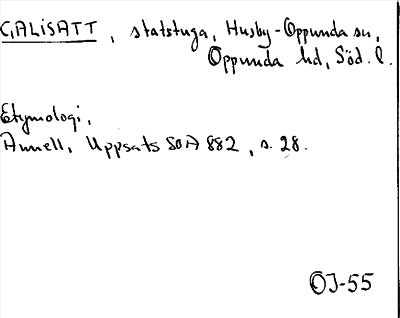 GALISATT, statstuga, Husby-Oppunda sn,
Oppunda hd, Söd. l.
Etymologi,
Annell, Uppsats SOA 882, s. 28.
OJ-55